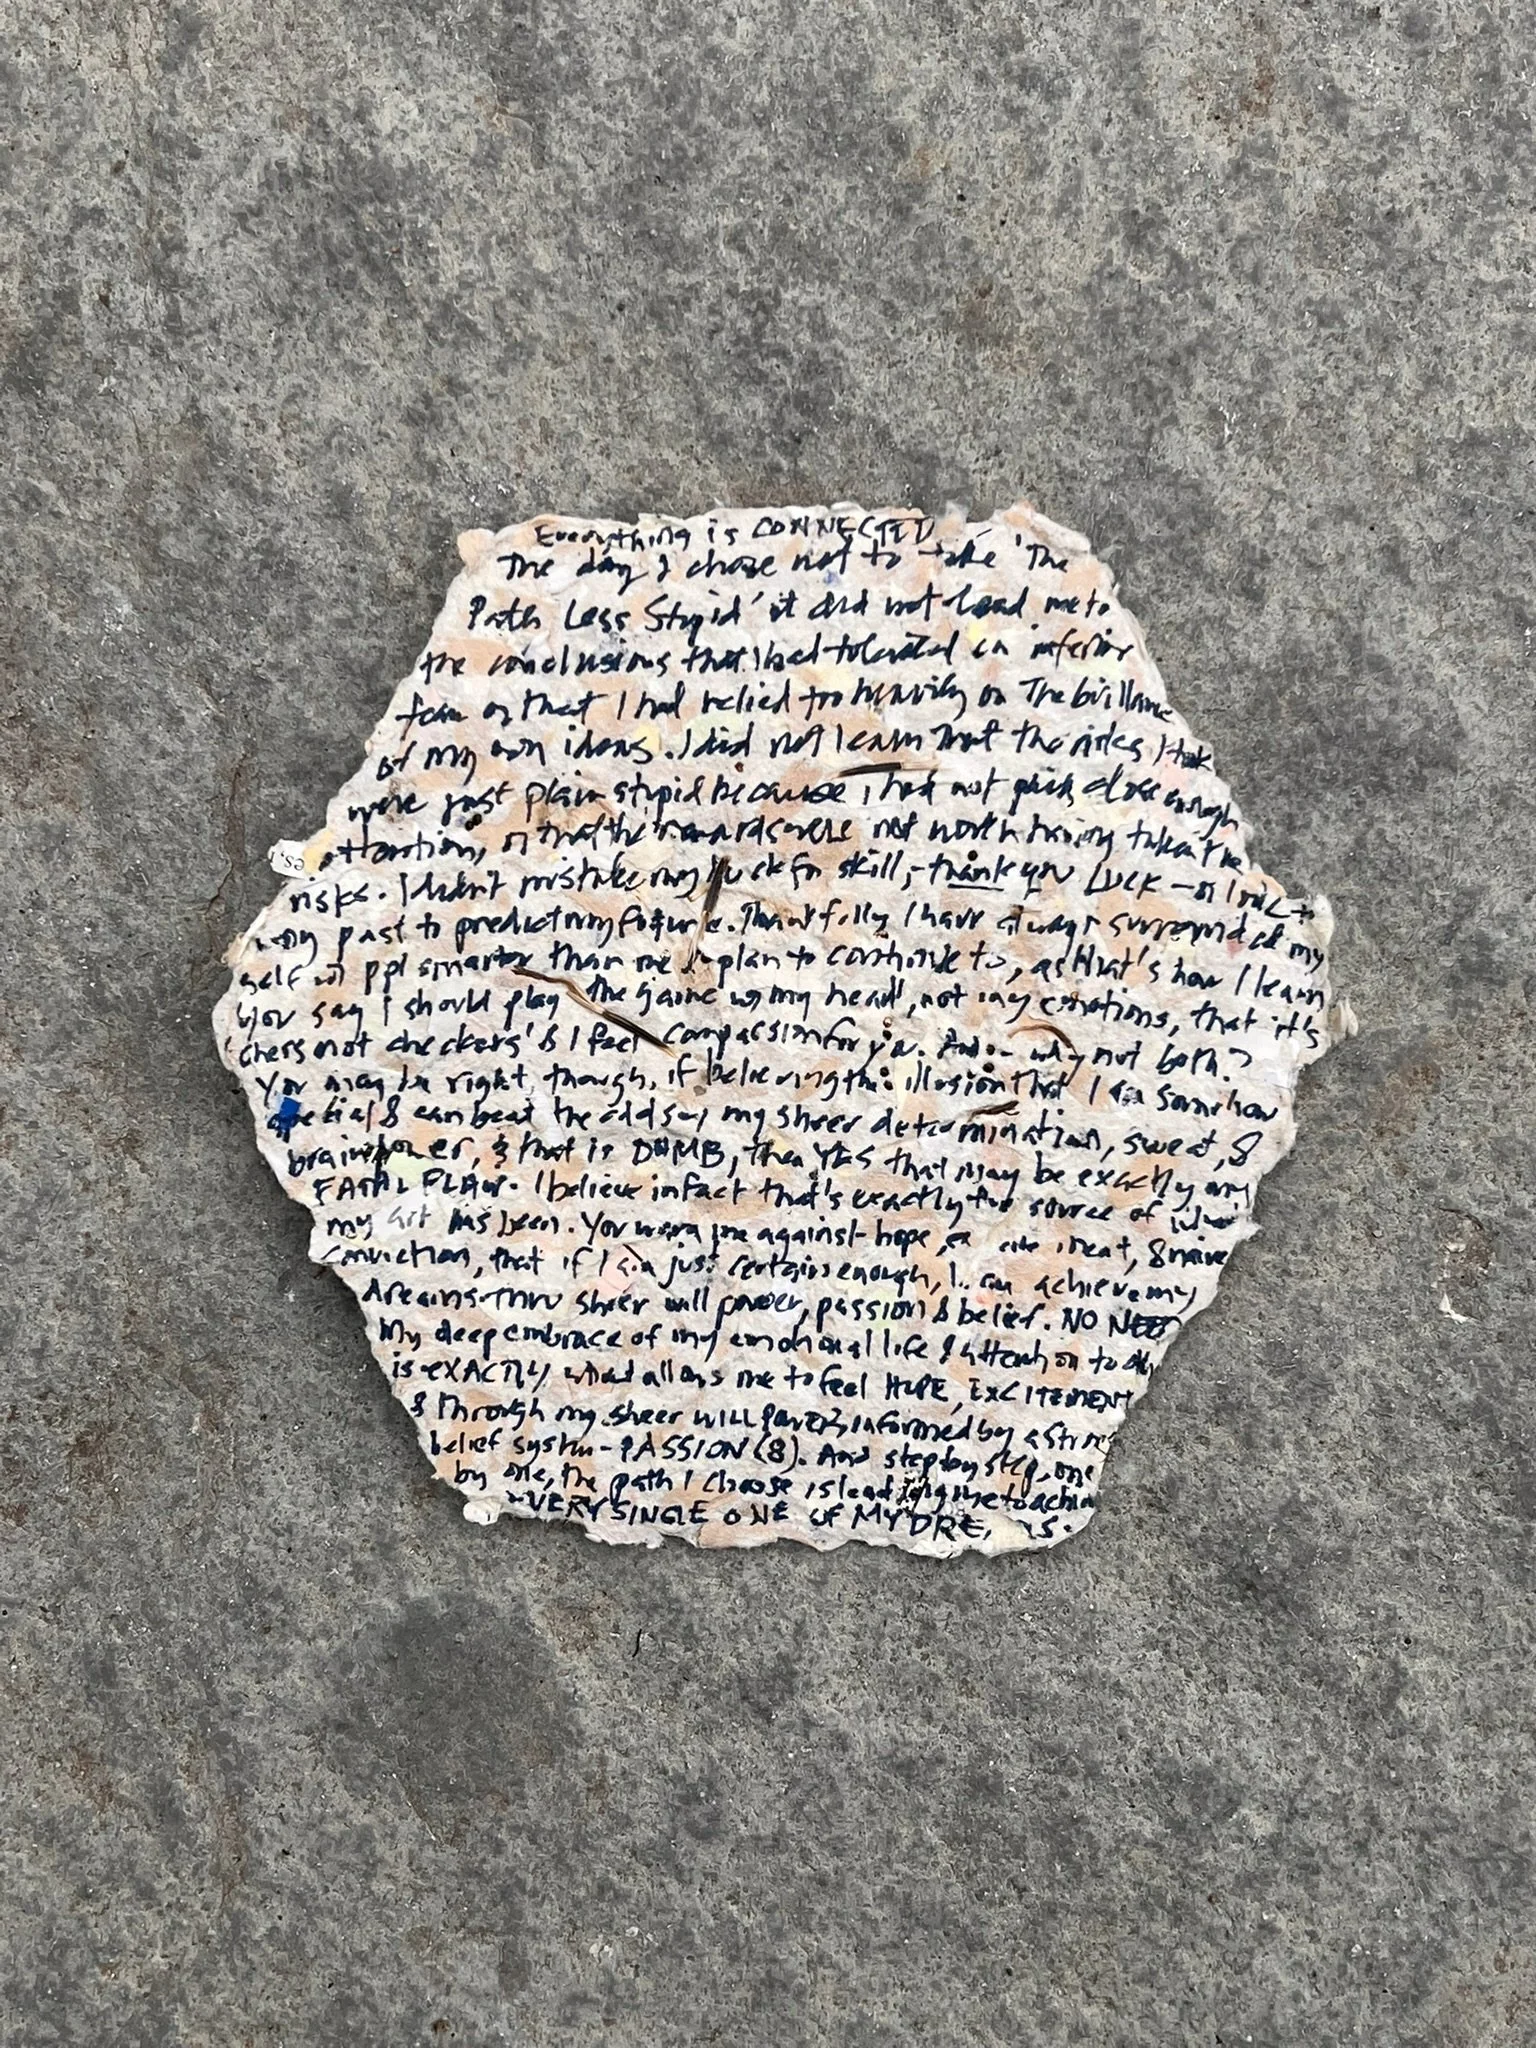 Everything is CONNECTED
The day I chose not to take 'The
Path Less Stupid' it did not lead me to
the conclusions that I had tolerated an inferior
team or that I had relied too heavily on The brilliance
of my own ideas. I did not learn that the risks I took
were just plain stupid because I had not paid close enough
attention, or that the rewards were not worth having taken the
risks. I didn't mistake my luck for skill, - thank you LUCK - or look to
my past to predict my future. Thankfully I have always surrounded my
self w/ ppl smarter than me & plan to continue to, as that's how I learn
You say I should play 'the game w/ my head', not my emotions, that it's
'chess not checkers' & I feel compassion for you. And - why not both?
You may be right, though, if believing the illusion that I am somehow
special & can beat the odds w/ my sheer determination, sweat, &
brainpower, & that is DUMB, then YES that may be exactly my
FATAL FLAW. I believe in fact that's exactly the source of
my art has been. You warn me against hope, & naive
conviction, that if I am just certain enough, I can achieve my
dreams thru sheer will power, passion & belief. NO NEED
My deep embrace of my emotional life & attention to
is EXACTLY what allows me to feel HOPE, EXCITEMENT
& through my sheer WILL power, informed by a strong
belief system - PASSION (8). And step by step, one
by one, the path I choose is leading me to achieve
EVERY SINGLE ONE of MY DREAMS.